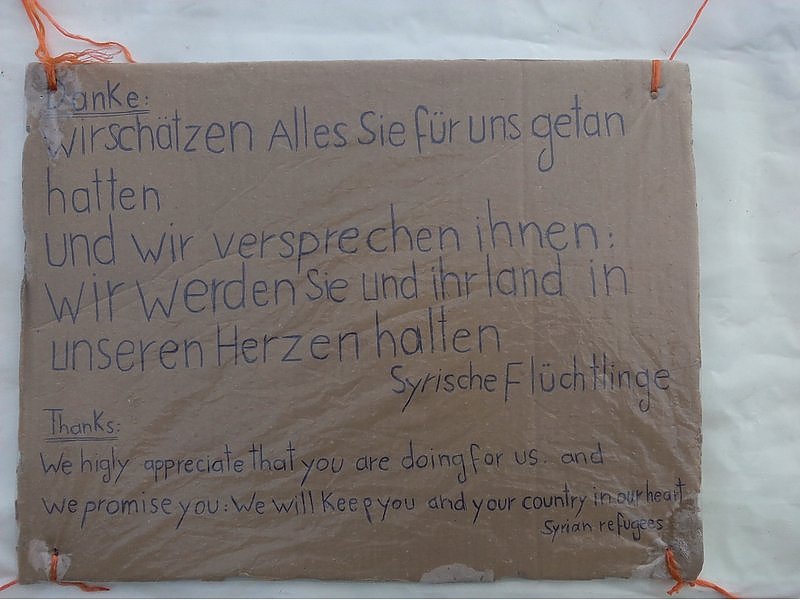 Danke:
wirschätzen Alles Sie für uns getan
hatten
und wir versprechen ihnen:
wir werden Sie und ihr land in
unseren Herzen halten
Syrische Flüchtlinge
Thanks:
We higly appreciate that you are doing for us. and
we promise you: We will Keep you and your country in our heart
Syrian refugees